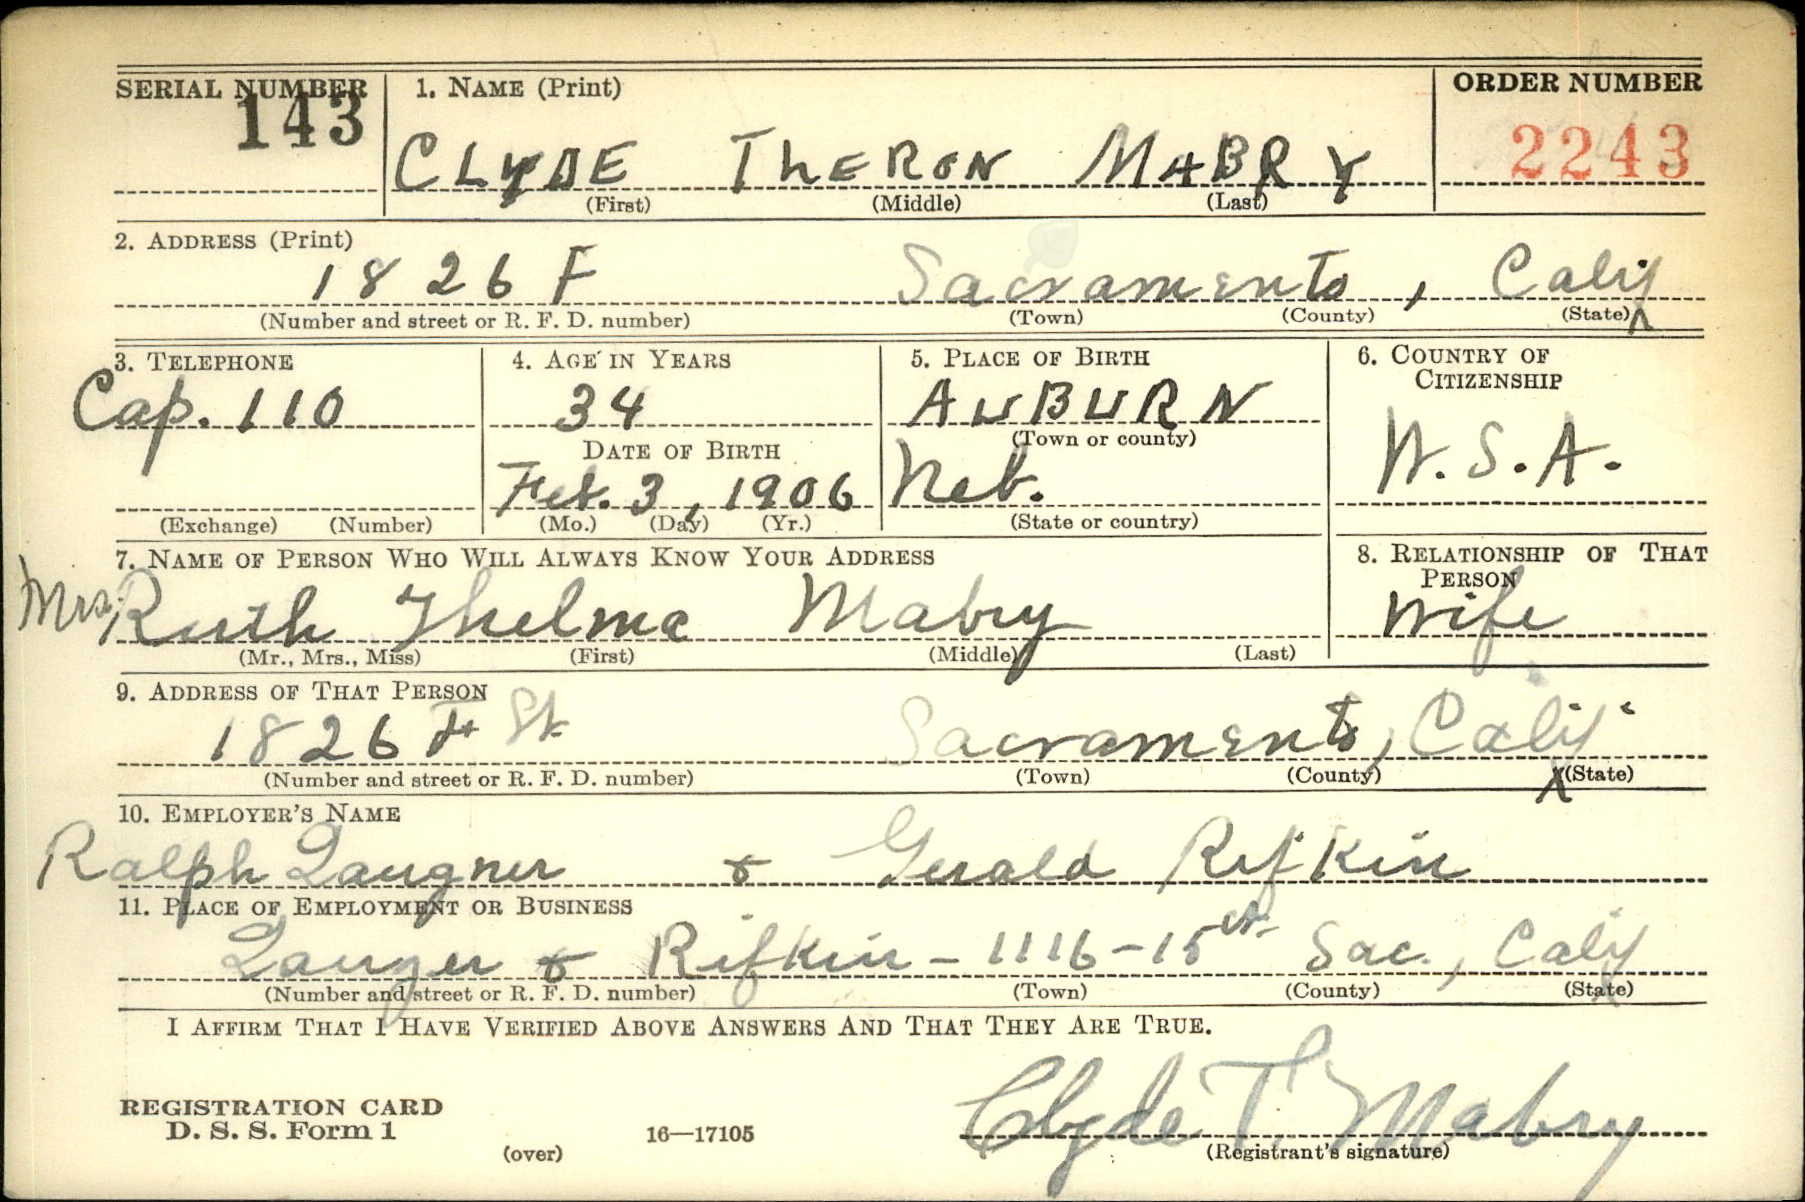 SERIAL NUMBER 1. NAME (Print) ORDER NUMBER
143 CLYDE THERON MABRY 2243
(First) (Middle) (Last)
2. ADDRESS (Print)
1826 F Sacramento, Calif
(Number and street or R. F. D. number) (Town) (County) (State)
3. TELEPHONE 4. AGE IN YEARS 5. PLACE OF BIRTH 6. COUNTRY OF CITIZENSHIP
Cap. 110 34 AUBURN
DATE OF BIRTH (Town or county) U.S.A.
Feb. 3, 1906 Neb.
(Exchange) (Number) (Mo.) (Day) (Yr.) (State or country)
7. NAME OF PERSON WHO WILL ALWAYS KNOW YOUR ADDRESS 8. RELATIONSHIP OF THAT PERSON
Mrs. Ruth Thelma Mabry Wife
(Mr., Mrs., Miss) (First) (Middle) (Last)
9. ADDRESS OF THAT PERSON
1826 F St Sacramento, Calif.
(Number and street or R. F. D. number) (Town) (County) (State)
10. EMPLOYER'S NAME
Ralph Langner & Gerald Rifkin
11. PLACE OF EMPLOYMENT OR BUSINESS
& Rifkin - 1116-15th Sac., Calif
(Number and street or R. F. D. number) (Town) (County) (State)
I AFFIRM THAT I HAVE VERIFIED ABOVE ANSWERS AND THAT THEY ARE TRUE.
Clyde T. Mabry
REGISTRATION CARD
D. S. S. Form 1 16—17105
(over) (Registrant's signature)